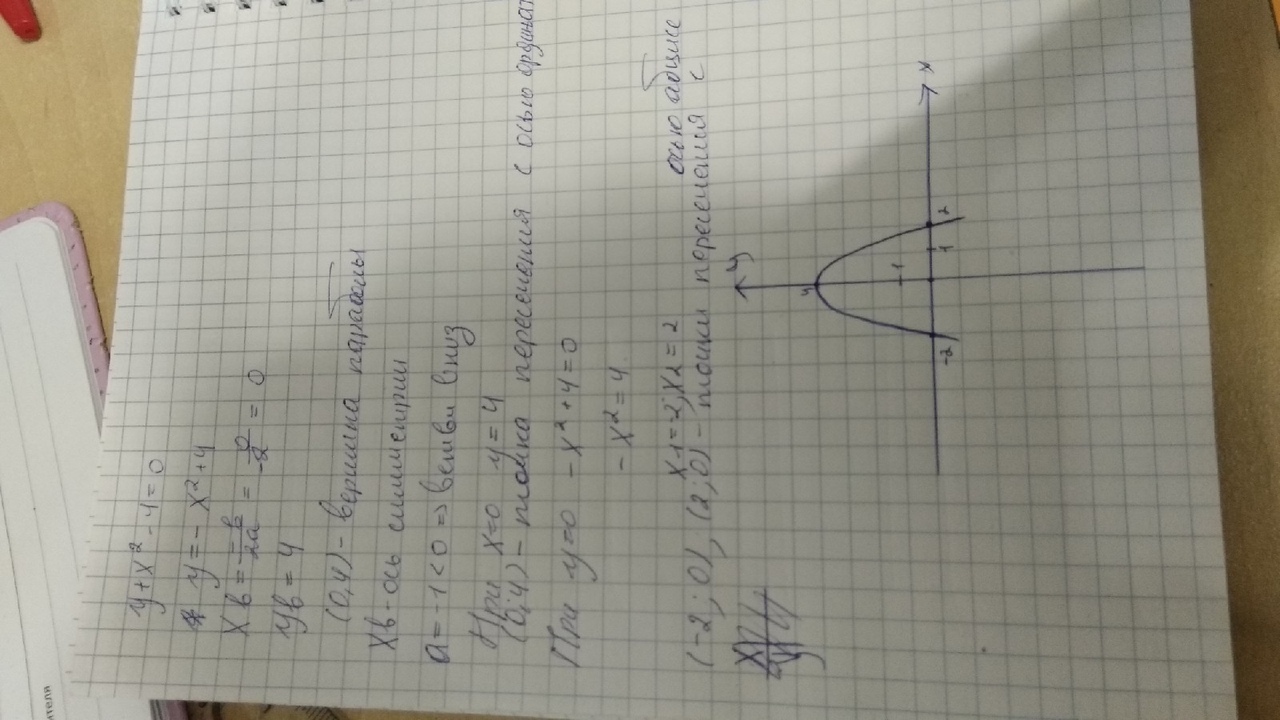 y + x² - 4 = 0
y = - x² + 4
Xв = -b/2a = 0/-2 = 0
Yв = 4
(0,4) - вершина параболы
Xв - ось симметрии
a = -1 < 0 => ветви вниз
При x=0 y = 4
(0;4) - точка пересечения с осью ординат
При y=0 - x² + 4 = 0
- x² = 4
x1 = -2; x2 = 2
(-2;0), (2;0) - точки пересечения с осью абцисс
y
4
1
-2
1
2
x
ителя